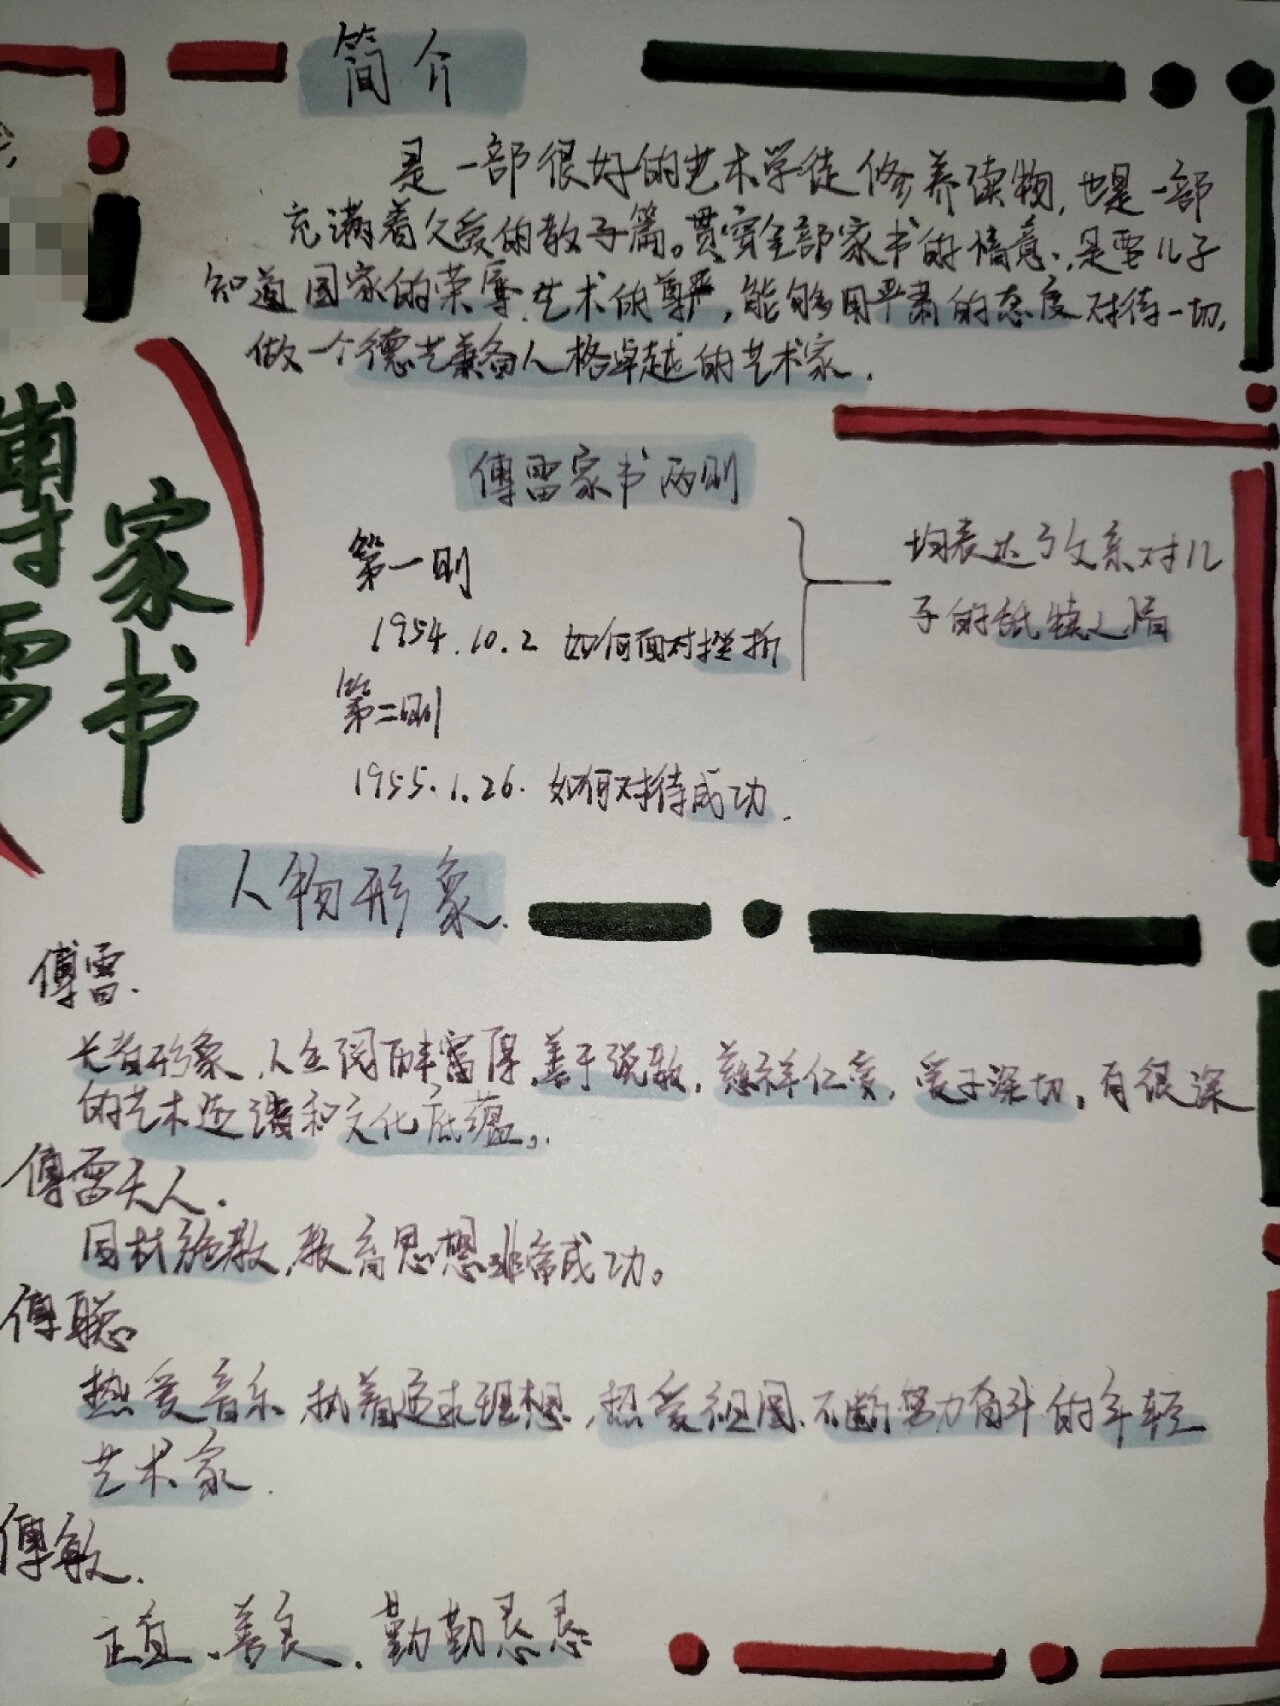 简介
是一部很好的艺术学徒修养读物,也是一部
充满着父爱的教子篇。贯穿全部家书的情意,是要儿子
知道国家的荣辱、艺术的尊严,能够用严肃的态度对待一切,
做一个德艺兼备人格卓越的艺术家.
傅雷
家书
傅雷家书两则
第一则
1954.10.2 如何面对挫折
第二则
1955.1.26. 如何对待成功.
均表达了父亲对儿
子的舐犊之情
人物形象.
傅雷.
长者形象,人生阅历丰富厚,善于说教,慈祥仁爱,爱子深切,有很深
的艺术造诣和文化底蕴。
傅雷夫人.
因材施教,教育思想非常成功。
傅聪
热爱音乐,执着追求理想,热爱祖国、不断努力奋斗的年轻
艺术家.
傅敏.
正直、善良、勤勤恳恳